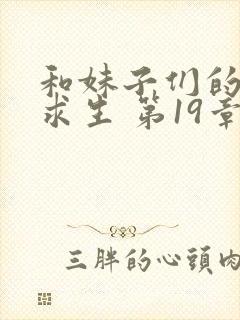 和妹子们的
求生 第19章
三胖的心頭肉